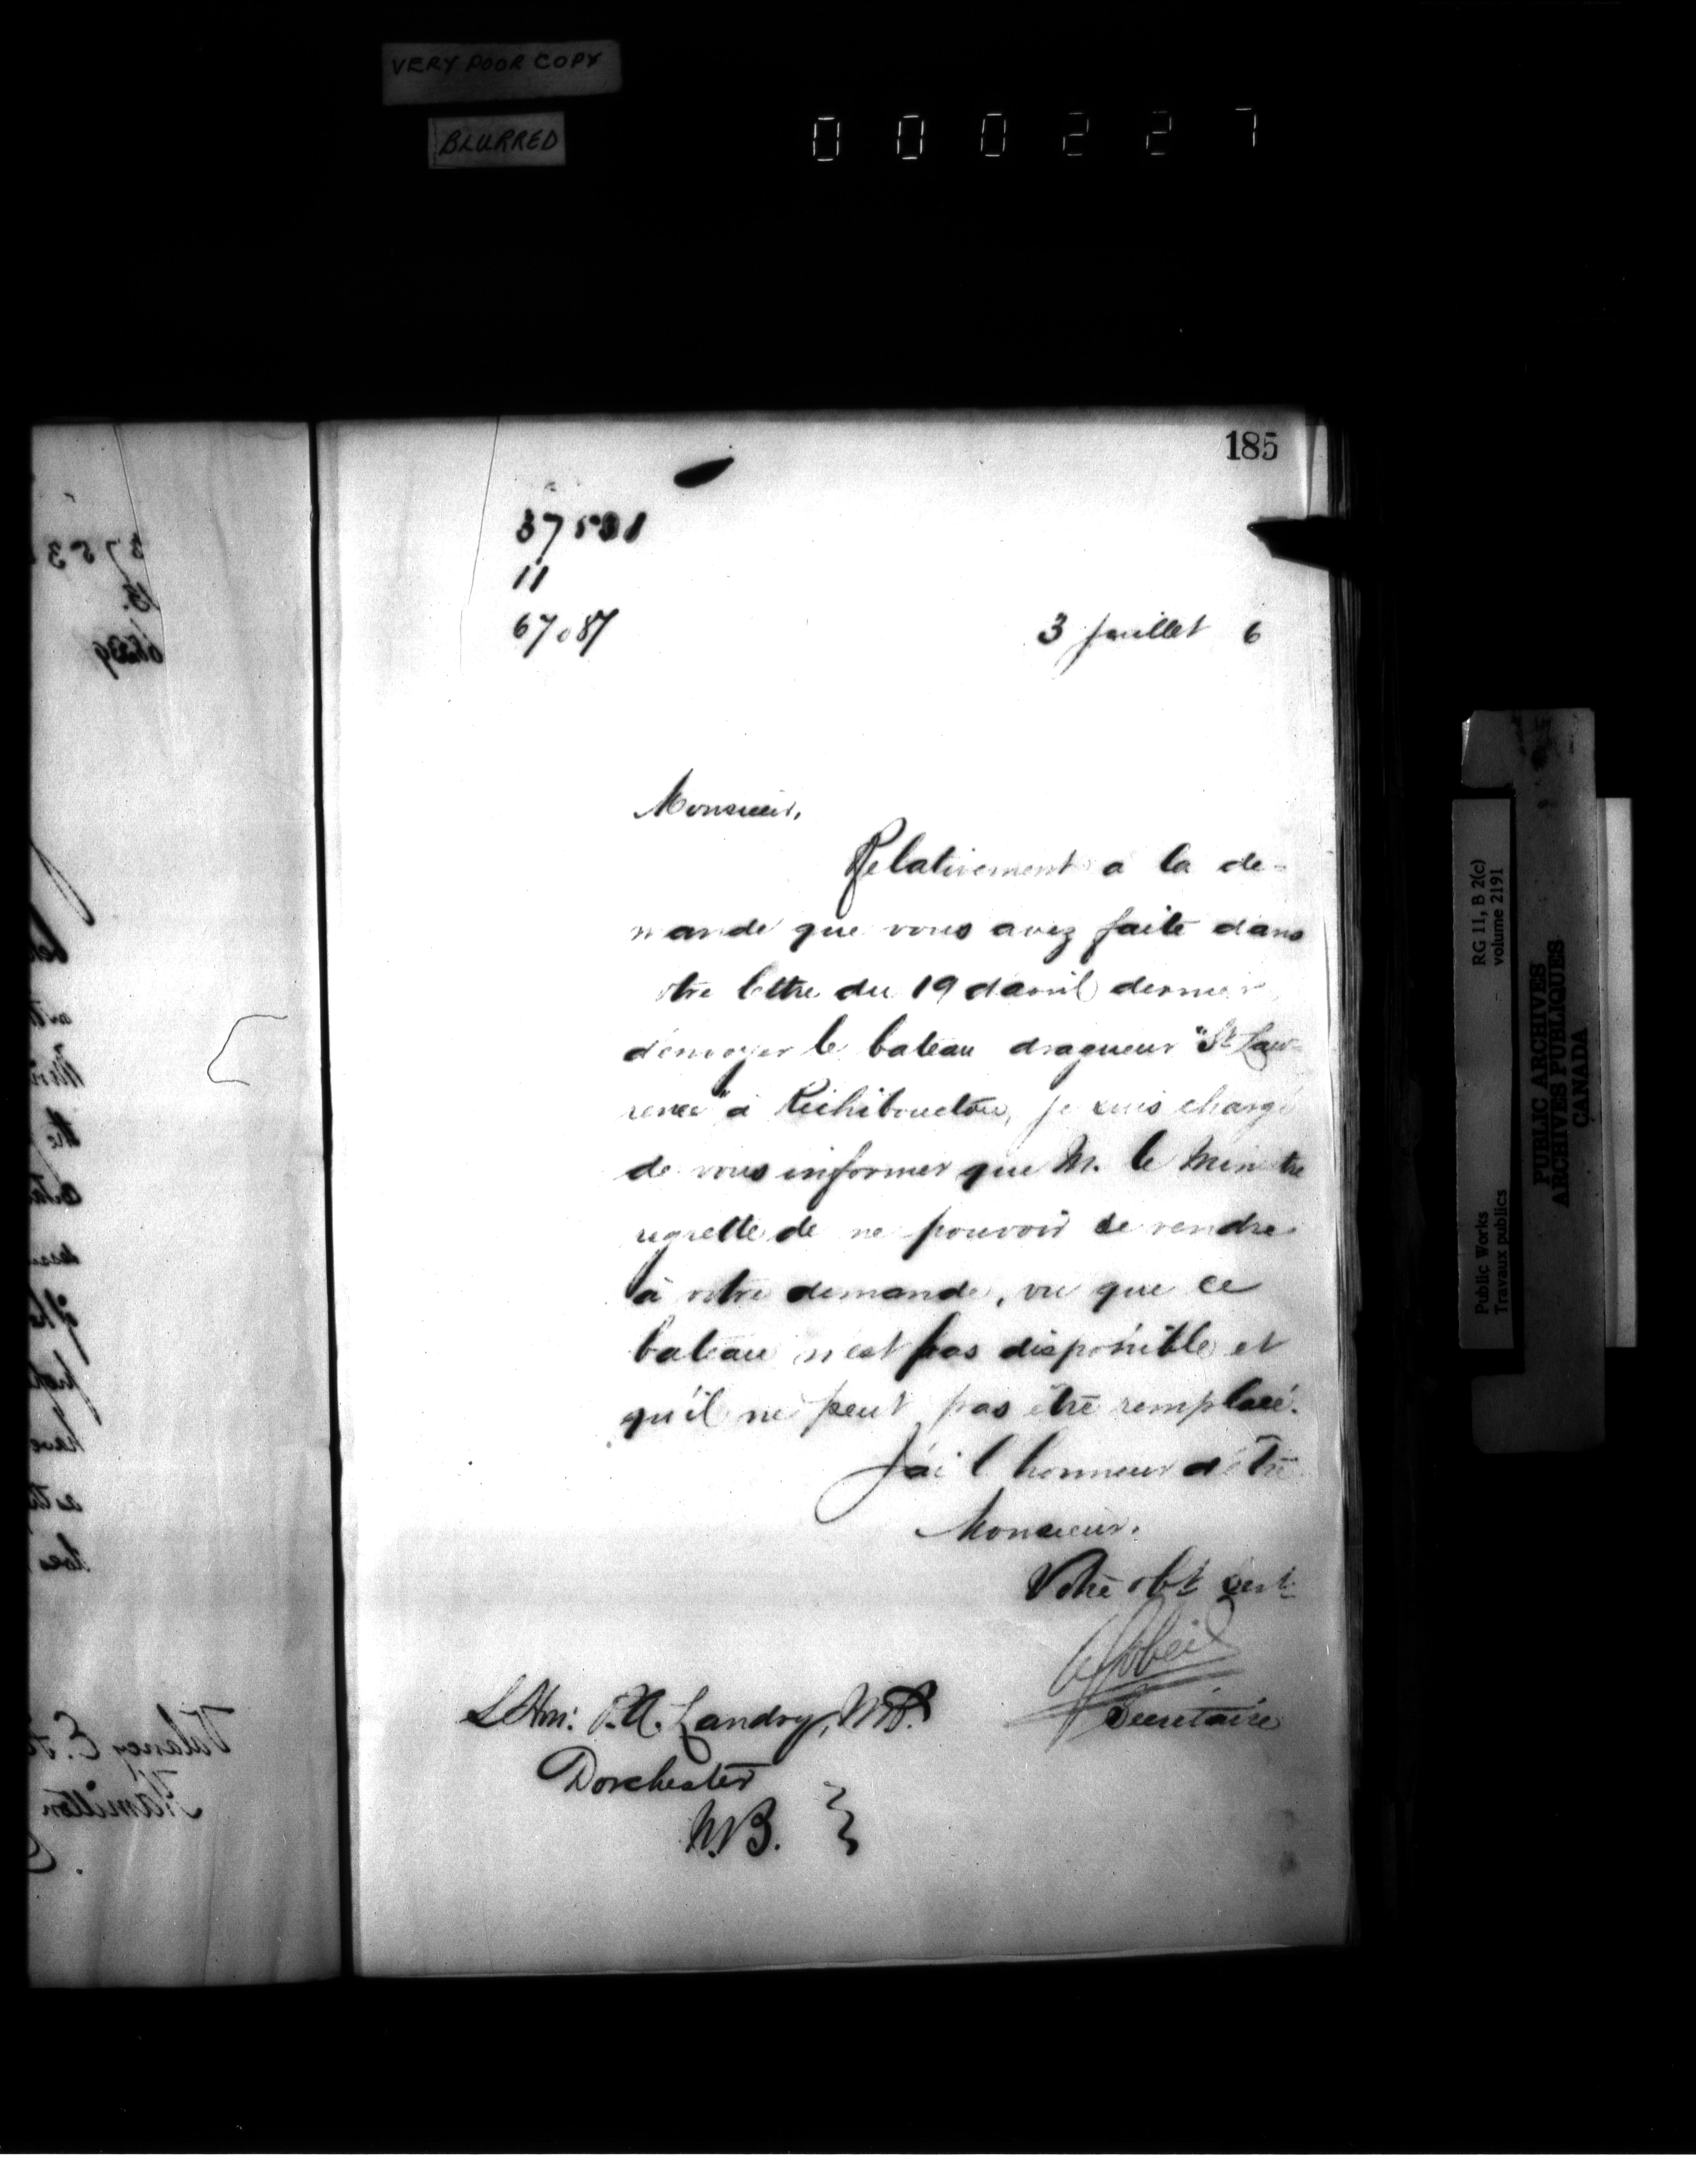 VERY POOR COPY
BLURRED
000227
185
11
67087
3 Juillet 6
Monsieur,
Relativement a la de-
mande que vous avez faite dans
otre lettre du 19 d'avril dernier
d'envoyer le bateau dragueur "St Law-
rence" à Richibouctou, je suis chargé
de vous informer que M. le Ministre
regrette de ne pouvoir se rendre
à votre demande, vu que ce
bateau n'est pas disponible et
qu'il ne peut pas être remplacé.
J'ai l'honneur d'être
Monsieur.
Votre obt. sert.
Gobeil
Secrétaire
L'Hon: P.A. Landry, M.P.
Dorchester
N.B.
RG 11, B 2(c)
volume 2191
Public Works
Travaux publics
PUBLIC ARCHIVES
ARCHIVES PUBLIQUES
CANADA